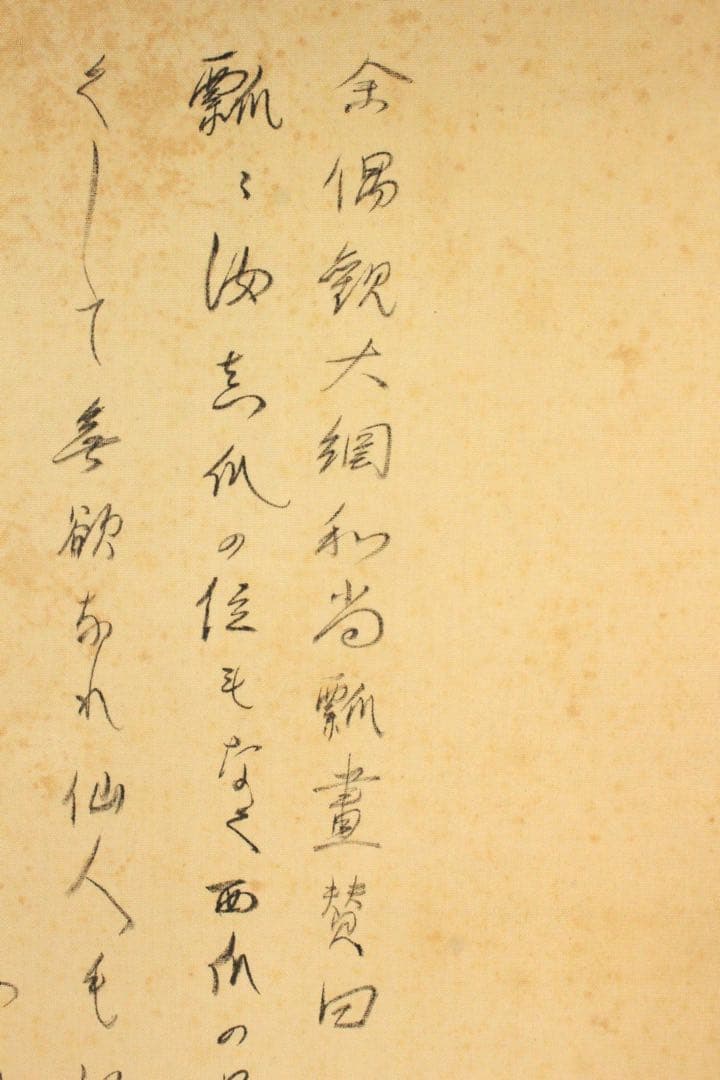 余偶観大綱和尚瓢畫賛曰
瓢〻汝真瓜の位もなく西瓜の
くして無欲なれ仙人も